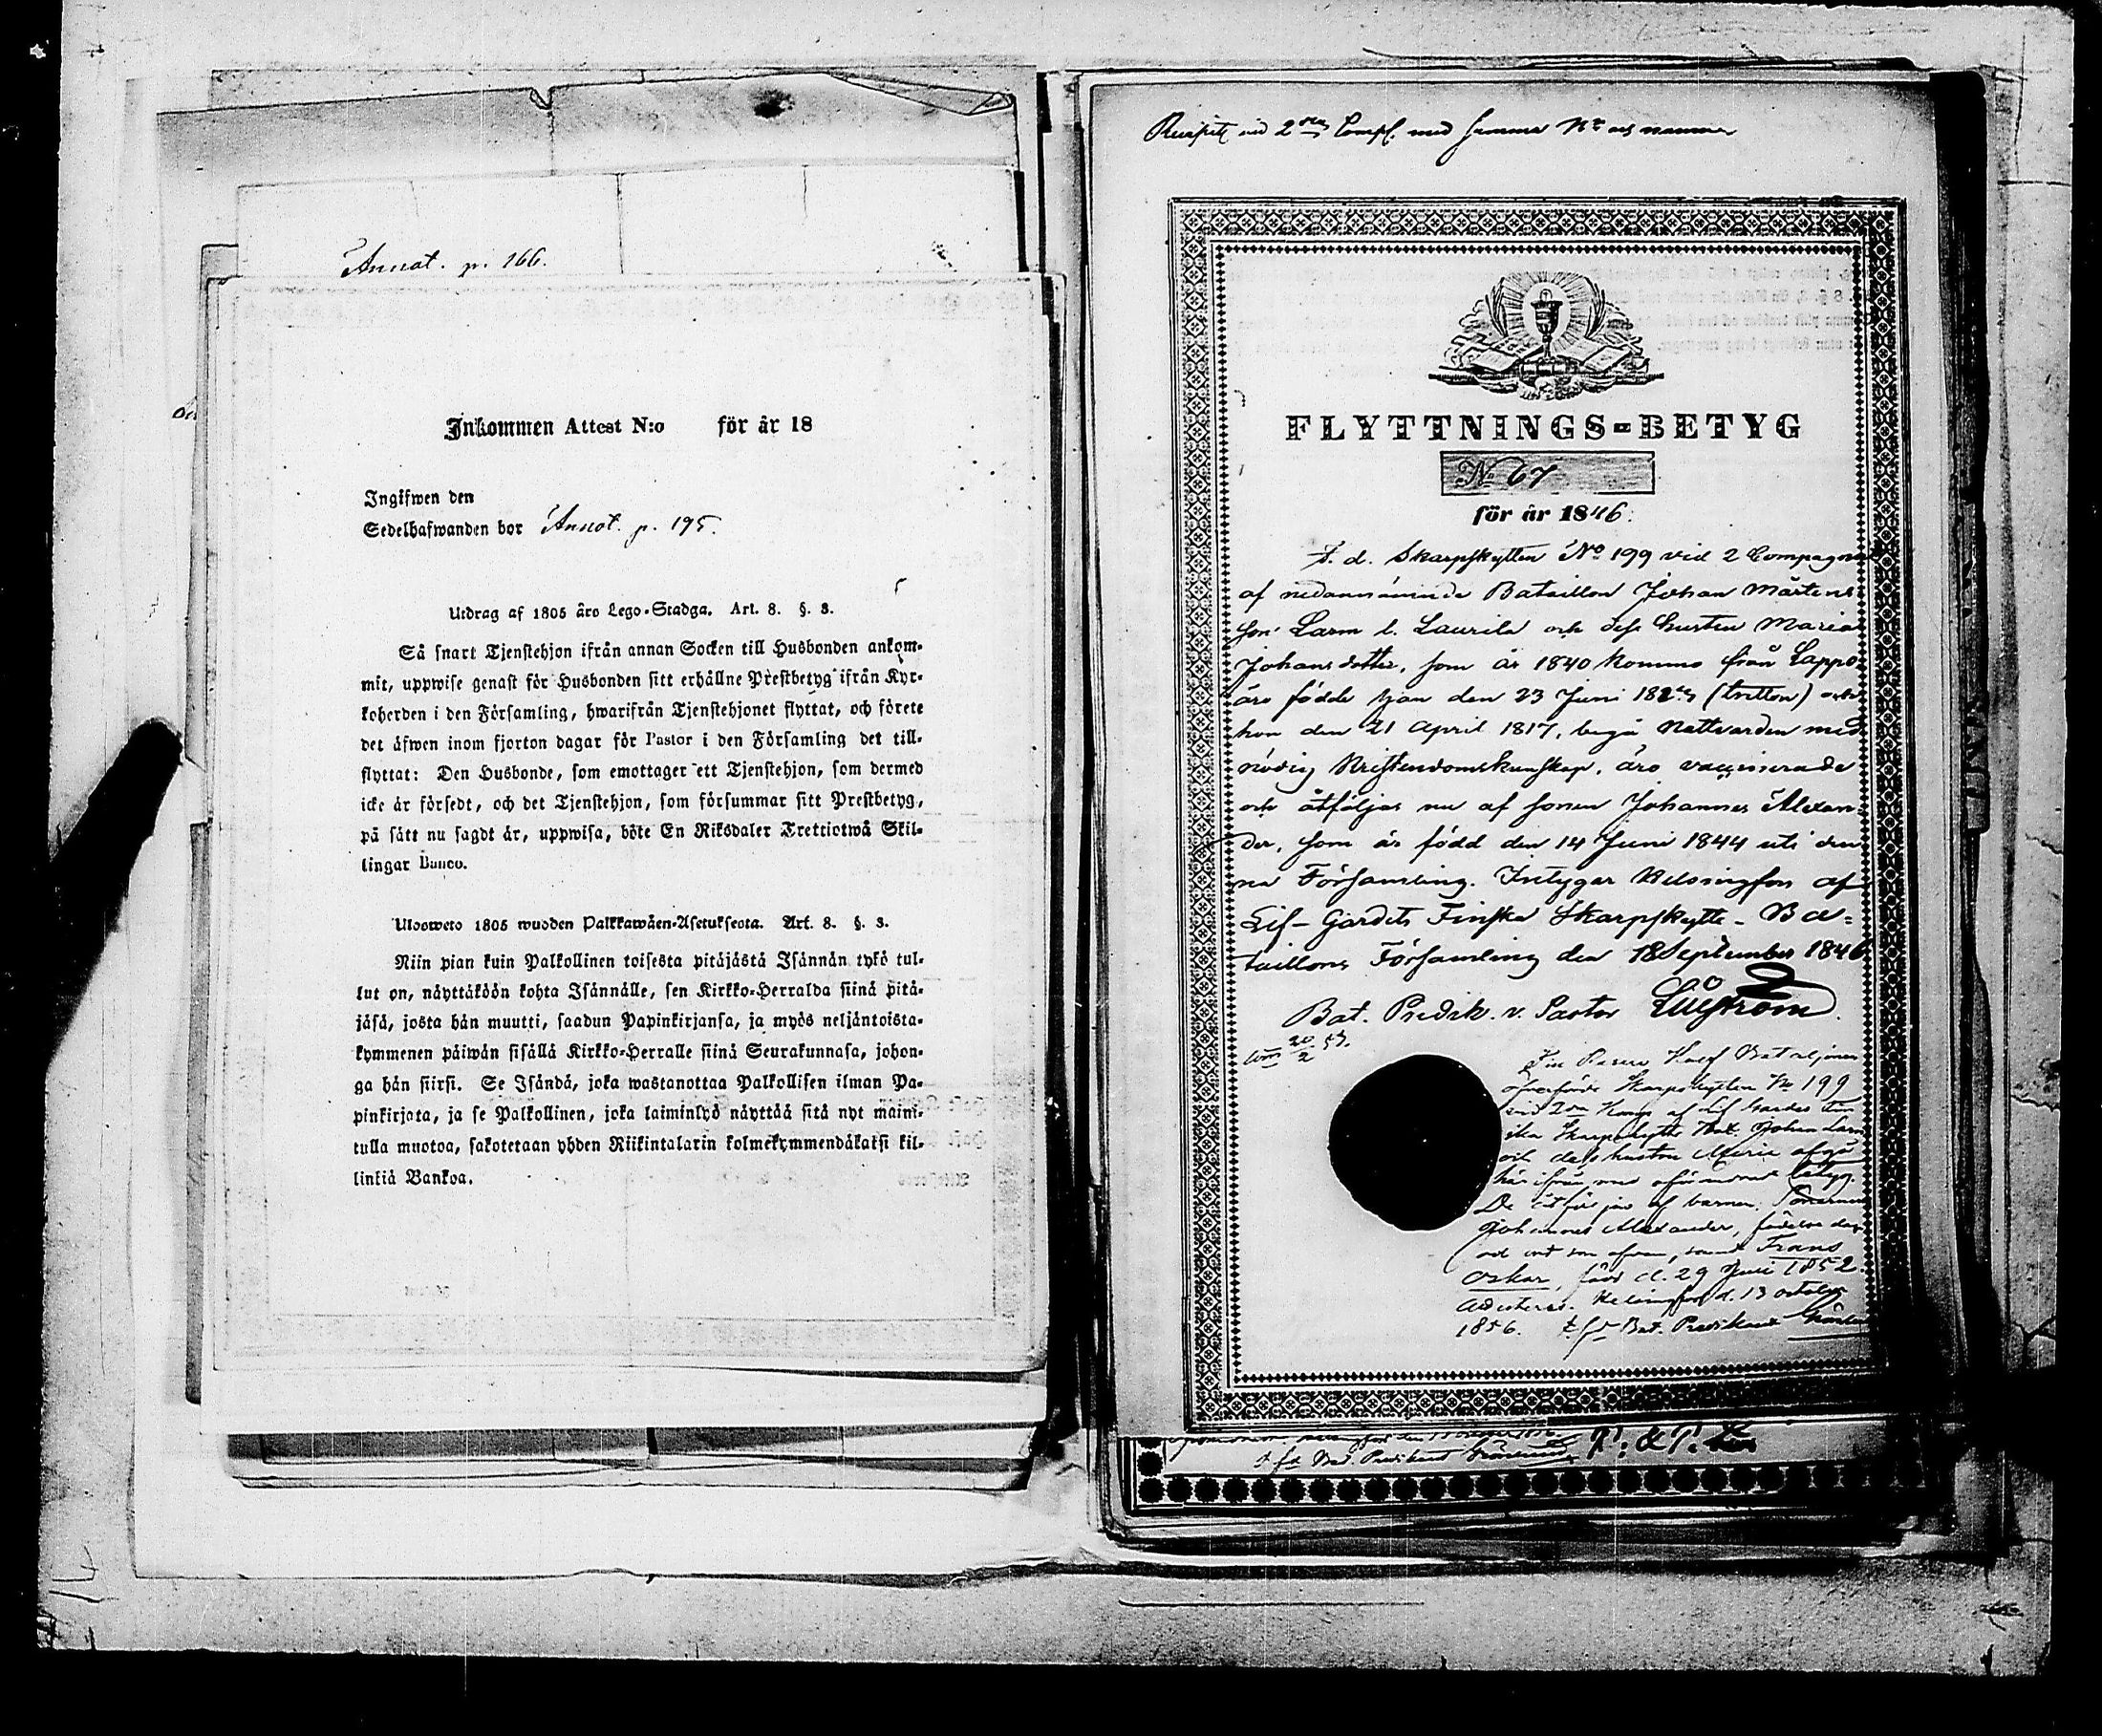 Annat. p. 166.
Inkommen Attest N:o för år 18
Ingifwen den
Sedelhafwanden bor Annot. p. 195.
Utdrag af 1805 års Lego-Stadga. Art. 8. §. 3.
Så snart Tjenstehjon ifrån annan Socken till Husbonden ankom-
mit, uppwise genast för Husbonden sitt erhållne Prestbetyg ifrån Kyr-
koherden i den Församling, hwarifrån Tjenstehjonet flyttat, och förete
det äfwen inom fjorton dagar för Pastor i den Församling det till-
flyttat: Den Husbonde, som emottager ett Tjenstehjon, som dermed
icke är försedt, och det Tjenstehjon, som försummar sitt Prestbetyg,
på sätt nu sagdt är, uppwisa, böte En Riksdaler Trettiotwå Skil-
lingar Banco.
Ulosweto 1805 wuoden Palkkawäen-Asetuksesta. Art. 8. §. 3.
Niin pian kuin Palkollinen toisesta pitäjästä Isännän tykö tul-
lut on, näyttäköön kohta Isännälle, sen Kirkko-Herralda siinä pitä-
jäsä, josta hän muutti, saadun Papinkirjansa, ja myös neljäntoista-
kymmenen päiwän sisällä Kirkko-Herralle siinä Seurakunnasa, johon-
ga hän siirsi. Se Isändä, joka wastanottaa Palkollisen ilman Pa-
pinkirjata, ja se Palkollinen, joka laiminlyö näyttää sitä nyt maini-
tulla muotoa, sakotetaan yhden Riikintalarin kolmekymmendäkaksi kil-
linkiä Bankoa.
vid 2dra Comp. med samma No och nummer
FLYTTNINGS-BETYG
No 67
för år 1846.
F. d. Skarpskytten No 199 vid 2 Compagniet
af nedannämnde Bataillon Johan Mårtens
son Larm l. Laurila och dess hustru Maria
Johansdotter, som år 1840 kommo från Lappo
äro födde han den 23 Juni (tretton) och
hon den 21 April 1817, begå Nattvarden med
nödig Kristendomskunskap, äro vaccinerade
och åtföljas nu af sonen Johannes Alexan-
der, som är född den 14 Juni 1844 uti den
na Församling. Intygar Helsingfors af
Lif-Gardets Finska Skarpskytte-Ba-
taillons Församling den 18 September 1846
Bat. Predik. v. Pastor
20/2 57.
Bataljonen
Skarpskytten No 199
vid 2dra Komp af Lif Gardes Fin
ska Skarpskytte Bat. Johan Larm
och dess hustru Maria afgå
härifrån med ofvannämnt betyg.
De åtföljas af barnen: Sönerne
Johannes Alexander, födelse dag
och ort som ofvan, samt Frans
Oskar, född d. 29 Juni 1852.
Helsingfors d. 13 October
1856. t.f. Bat. Predikant
t.f. Bat. Predikant